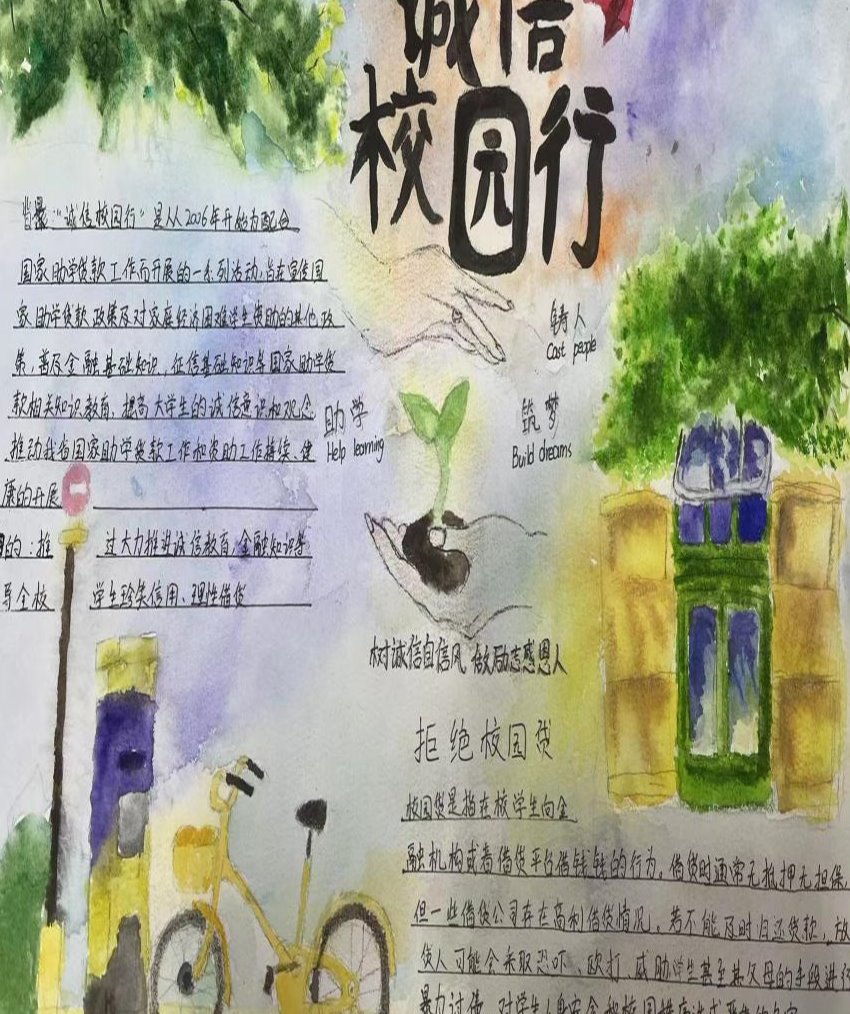 诚信
校园行
"诚信校园行"是从2006年开始为配合
国家助学贷款工作而开展的一系列活动,旨在宣传国
家助学贷款政策及对家庭经济困难学生资助的其他政
策,普及金融基础知识,征信基础知识等国家助学贷
款相关知识教育,提高大学生的诚信意识和观念
推动我省国家助学贷款工作和资助工作持续、健
康的开展
目的:推 过大力推进诚信教育,金融知识等
导全校 学生珍笑信用、理性借贷
铸人
Cast people
助学
Help learning
筑梦
Build dreams
树诚信自信风 做励志感恩人
拒绝校园贷
校园贷是指在校学生向金
融机构或者借贷平台借钱的行为,借贷时通常无抵押无担保,
但一些借贷公司存在高利借贷情况。若不能及时归还贷款,放
贷人可能会采取恐吓、欧打、威胁学生甚至其父母的手段进行
暴力讨债,对学生人身安全和校园秩序造成严重的危害